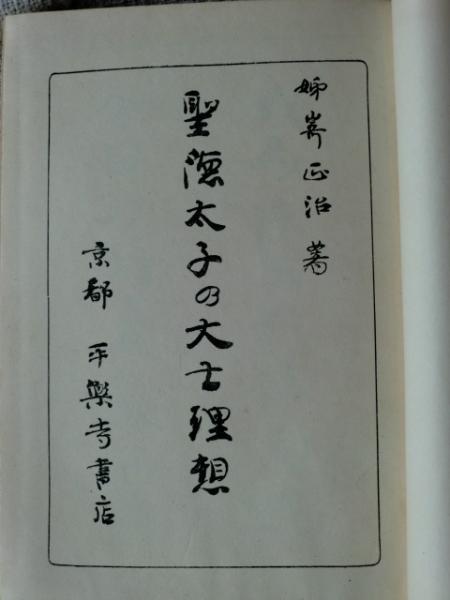 姉崎正治 著
聖徳太子の大士理想
京都 平樂寺書店